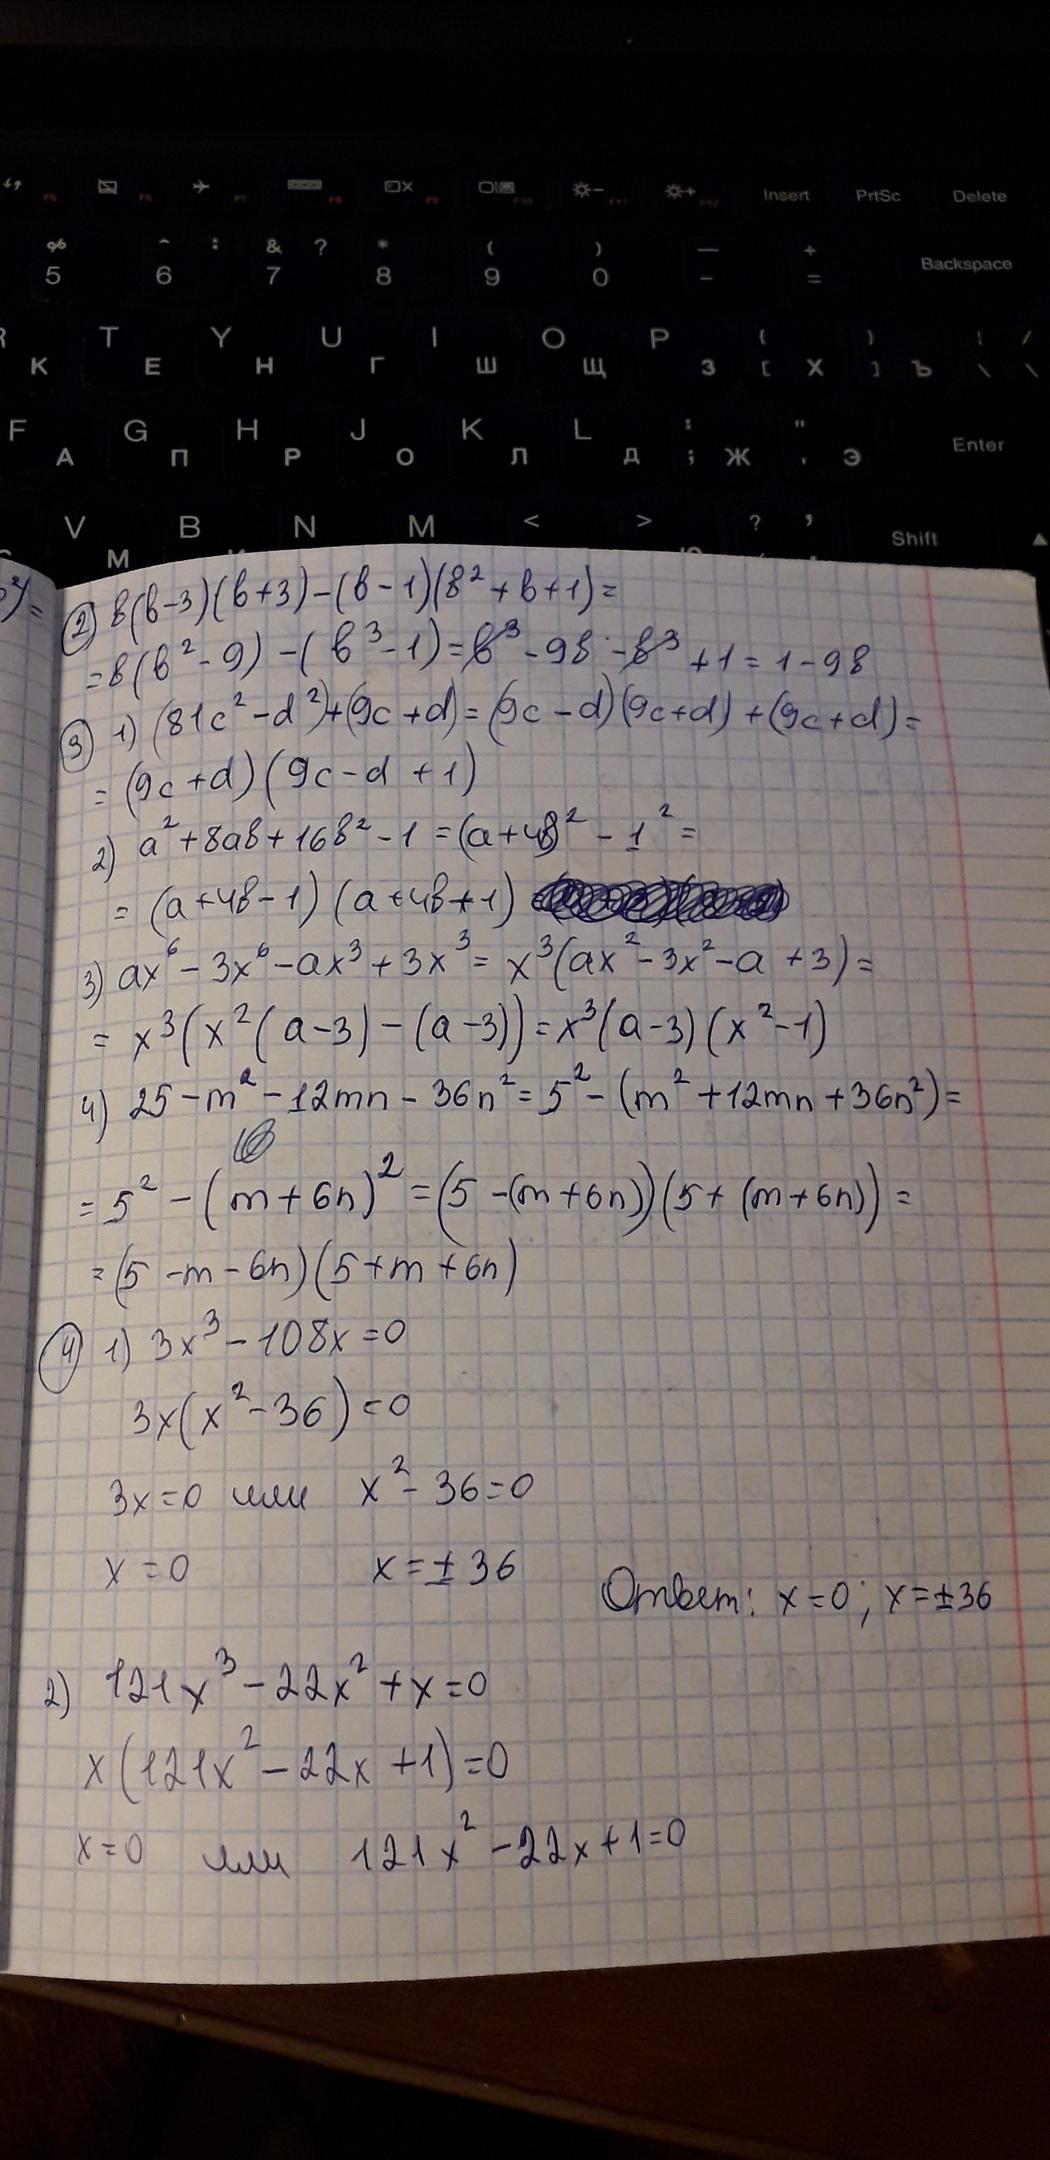 F5 F6 F7 F8 F9 F10 F11 F12 Insert PrtSc Delete
% ^ : & ? * ( ) — +
5 6 7 8 9 0 - = Backspace
R T Y U I O P { } | /
К Е Н Г Ш Щ З [ Х ] Ъ \ \
F G H J K L : " Enter
А П Р О Л Д ; Ж ' Э
V B N M < > ? , Shift
М
2) b(b-3)(b+3)-(b-1)(b²+b+1)=
=b(b²-9)-(b³-1)=b³-9b-b³+1=1-9b
3) 1) (81c²-d²)+(9c+d)=(9c-d)(9c+d)+(9c+d)=
=(9c+d)(9c-d+1)
2) a²+8ab+16b²-1=(a+4b)²-1²=
=(a+4b-1)(a+4b+1)
3) ax⁶-3x⁶-ax³+3x³=x³(ax²-3x²-a+3)=
=x³(x²(a-3)-(a-3))=x³(a-3)(x²-1)
4) 25-m²-12mn-36n²=5²-(m²+12mn+36n²)=
=5²-(m+6n)²=(5-(m+6n))(5+(m+6n))=
=(5-m-6n)(5+m+6n)
4) 1) 3x³-108x=0
3x(x²-36)=0
3x=0 или x²-36=0
x=0 x=±36
Ответ: x=0; x=±36
2) 121x³-22x²+x=0
x(121x²-22x+1)=0
x=0 или 121x²-22x+1=0